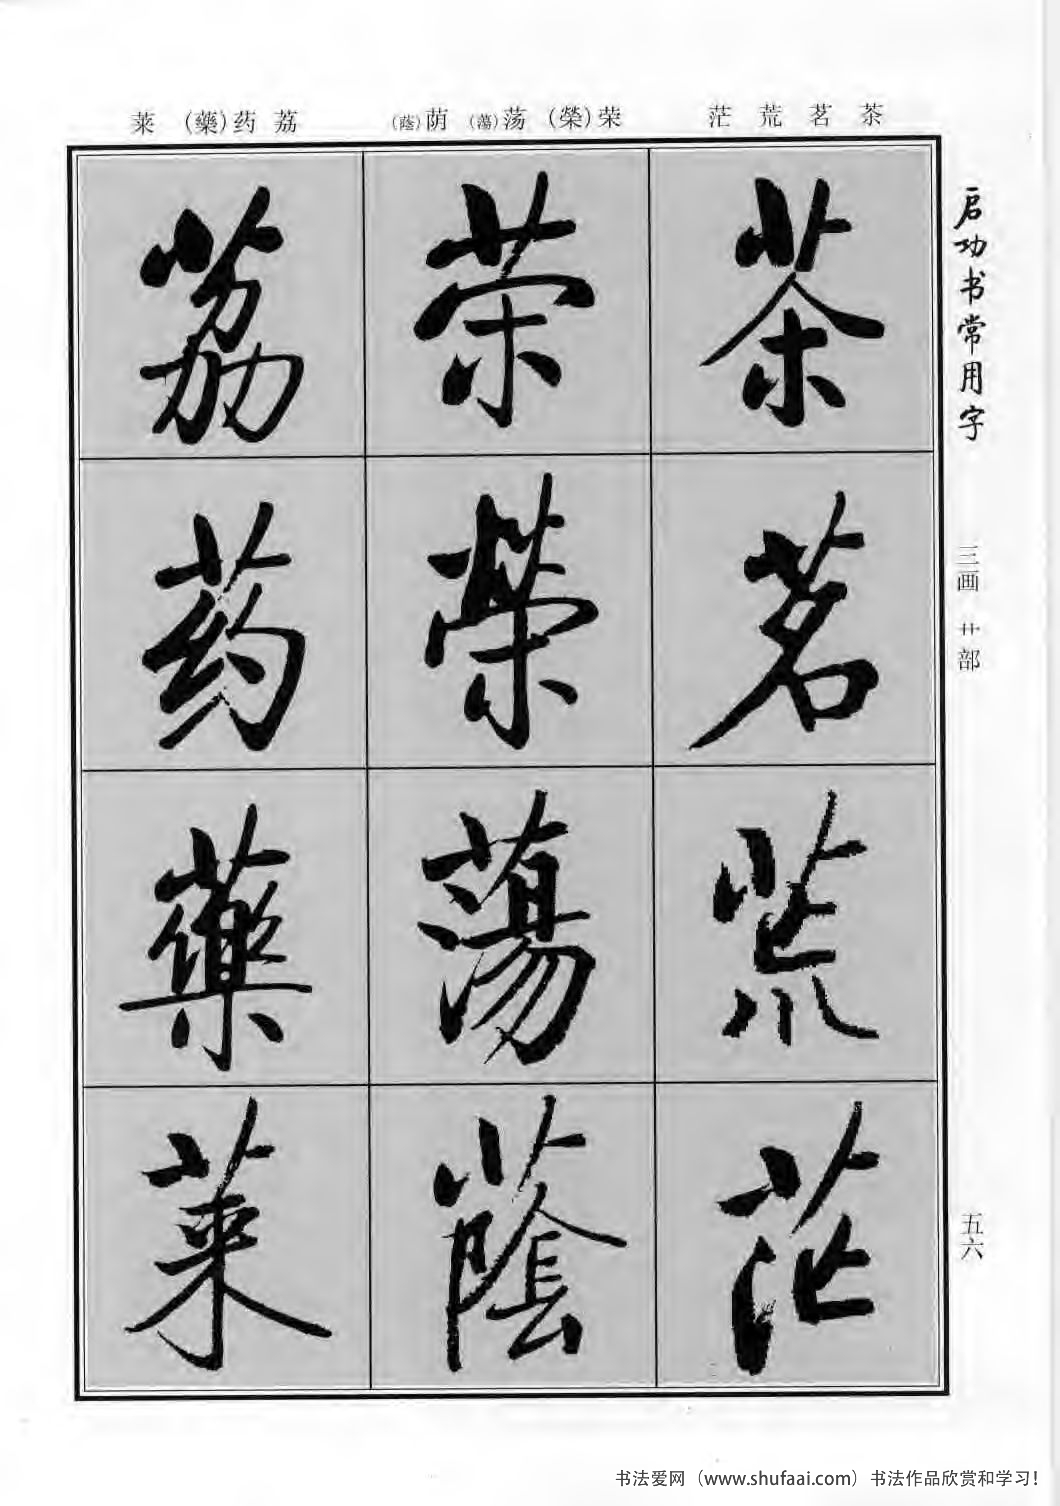 启功书常用字
三画 艹部
五六
茶 茗 荒 茫
荣(榮) 荡(蕩) 荫(蔭)
荔 药(藥) 莱
茶
茗
荒
茫
荣
榮
蕩
蔭
荔
药
藥
莱
书法爱网（www.shufaai.com）书法作品欣赏和学习！